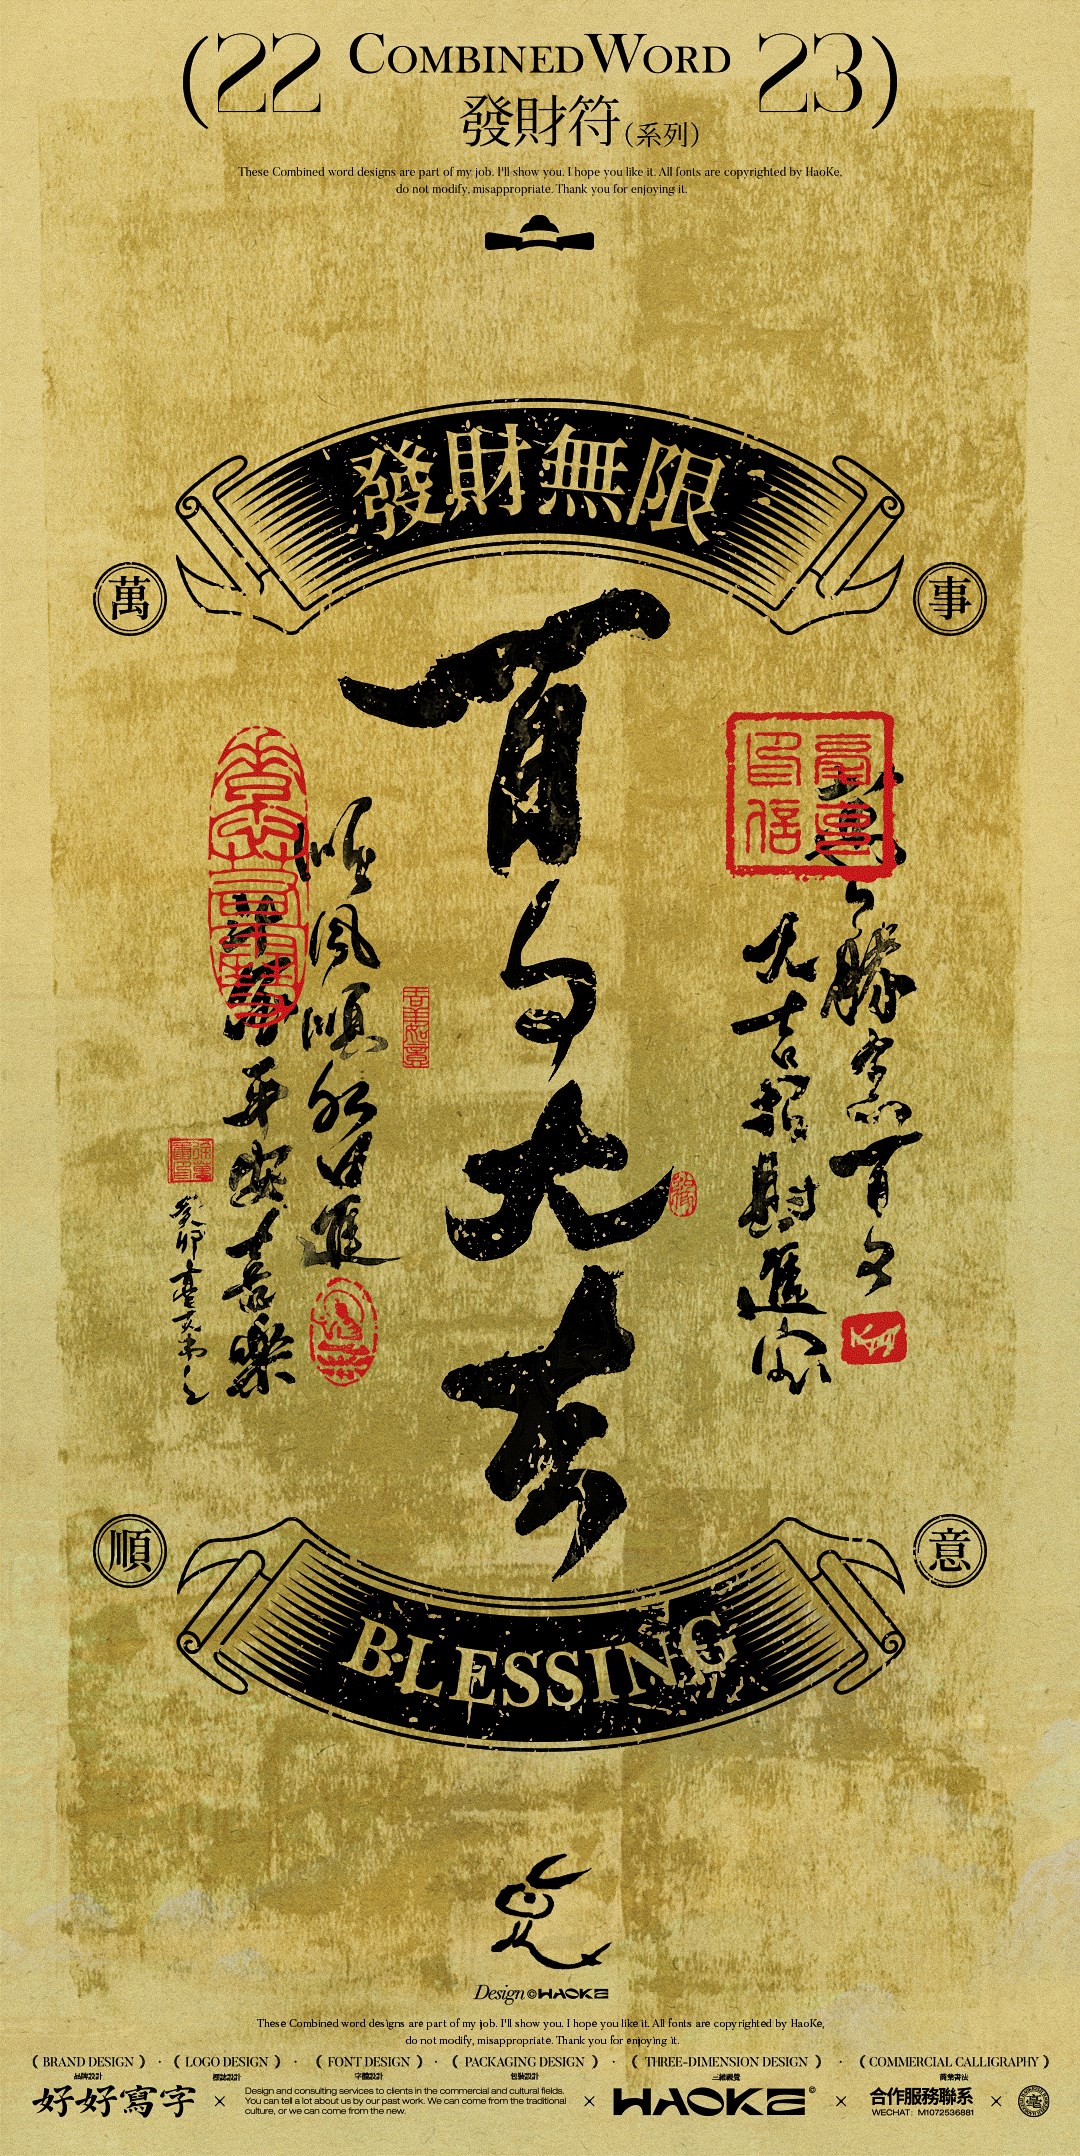 (22 COMBINED WORD 23)
發財符(系列)
These Combined word designs are part of my job. I'll show you. I hope you like it. All fonts are copyrighted by HaoKe,
do not modify, misappropriate. Thank you for enjoying it.
發財無限
萬 事
百無大吉
大吉招財進寶
順風順水日進
平安喜樂
順 意
BLESSING
Design ©HAOKE
These Combined word designs are part of my job. I'll show you. I hope you like it. All fonts are copyrighted by HaoKe,
do not modify, misappropriate. Thank you for enjoying it.
( BRAND DESIGN ) · ( LOGO DESIGN ) · ( FONT DESIGN ) · ( PACKAGING DESIGN ) · ( THREE-DIMENSION DESIGN ) · ( COMMERCIAL CALLIGRAPHY )
品牌設計 標誌設計 字體設計 包裝設計 三維視覺 商業書法
好好寫字 × Design and consulting services to clients in the commercial and cultural fields.
You can tell a lot about us by our past work. We can come from the traditional
culture, or we can come from the new.
× HAOKE© × 合作服務聯系
WECHAT: M1072536881 ×